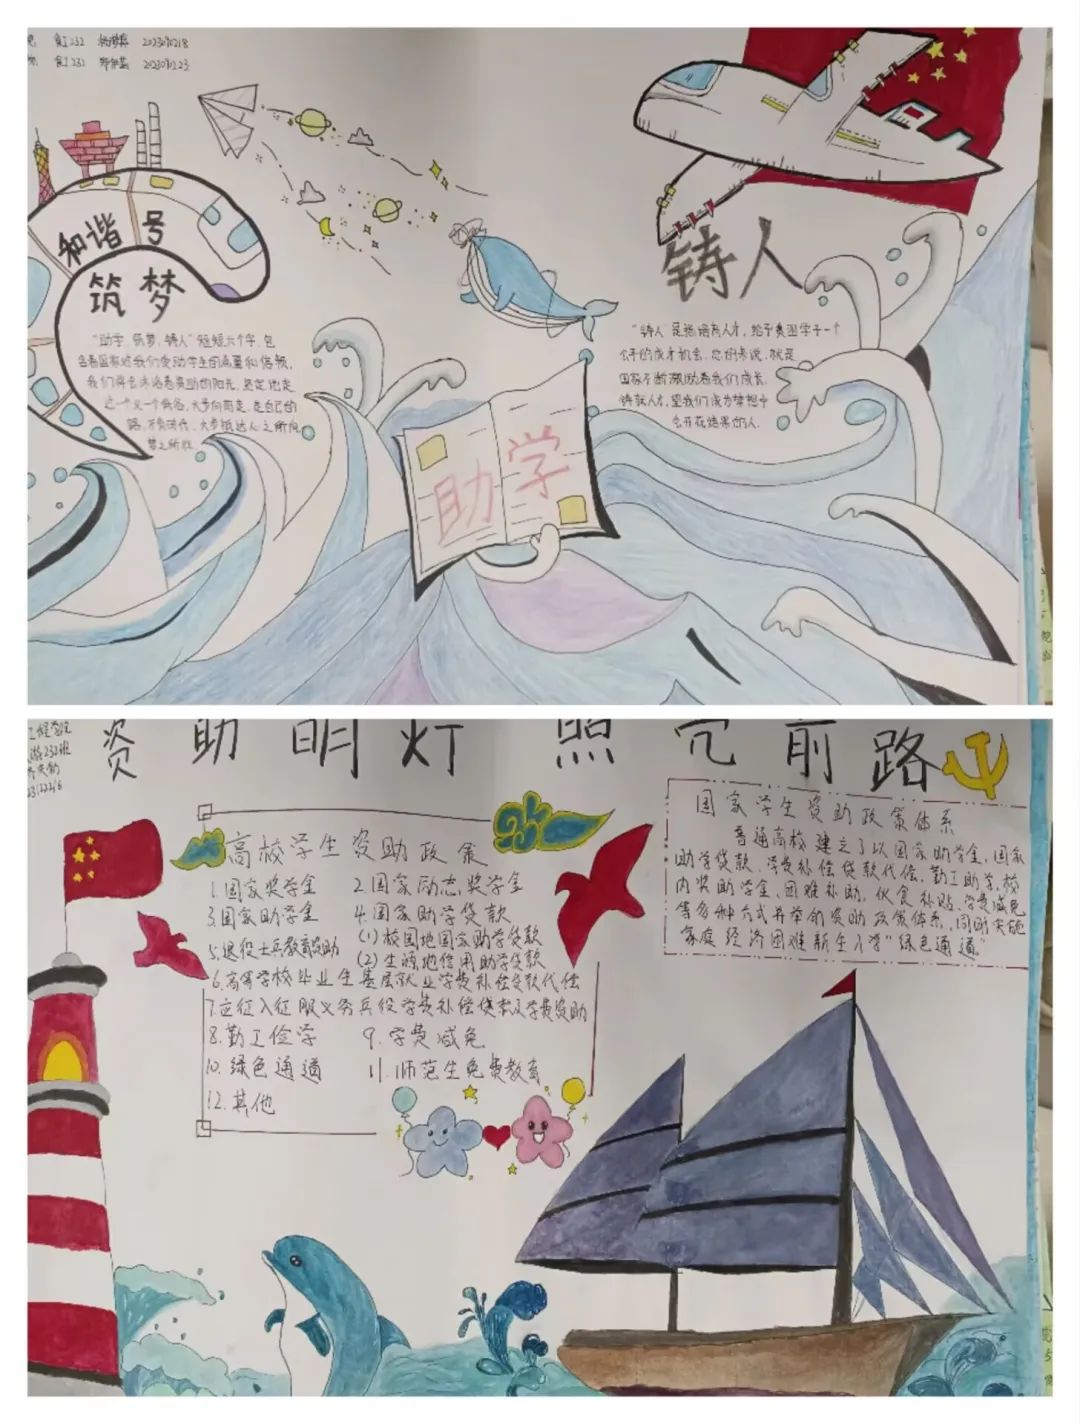 食工232
20230210218
食工232
和谐号
筑梦
"助学、筑梦、铸人"短短六个字,包
含着国家对我们受助学生的
我们将会沐浴着资助的阳光,坚定地走
大步向前走,走自己的
路,不负时代,大步抵达人之所向
梦之所往
铸人
"铸人"是
国家不断激励着我们成长
会开花结果的人.
助学
工程学院
232班
资助明灯 照亮前路
高校学生资助政策
1.国家奖学金 2.国家励志奖学金
3.国家助学金 4.国家助学贷款
(1)校园地国家助学贷款
5.退役士兵教育资助 (2)生源地信用助学贷款
6.高等学校毕业生基层就业学费补偿贷款代偿
7.应征入征服义务兵役学费补偿贷款及学费资助
8.勤工俭学 9.学费减免
10.绿色通道 11.师范生免费教育
12.其他
国家学生资助政策体系
普通高校建立了以国家助学金、国家
助学贷款、学费补偿贷款代偿、勤工助学、校
内奖助学金、困难补助、伙食补贴、学费减免
等多种方式并举的资助政策体系,同时实施
家庭经济困难新生入学"绿色通道"